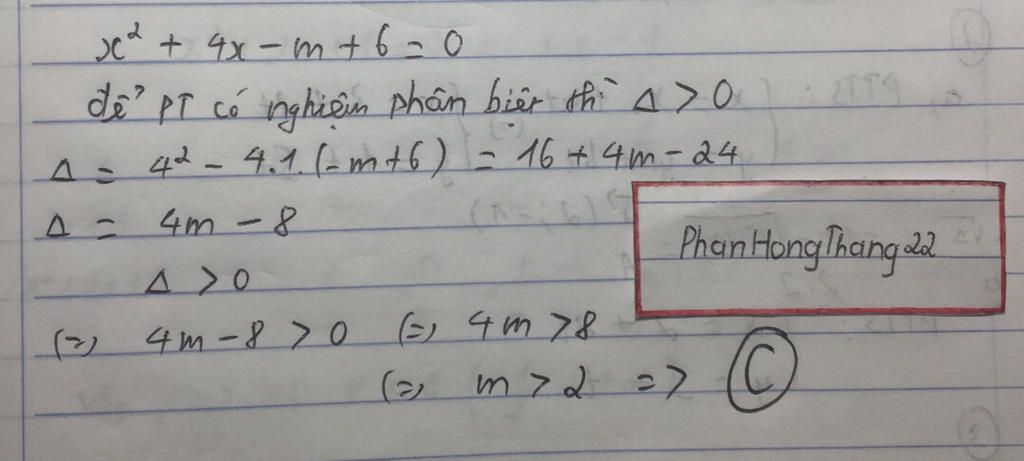 x² + 4x - m + 6 = 0
để PT có nghiệm phân biệt thì Δ > 0
Δ = 4² - 4.1.(-m+6) = 16 + 4m - 24
Δ = 4m - 8
PhanHongThang22
Δ > 0
(=) 4m - 8 > 0 (=) 4m > 8
(=) m > 2 => C